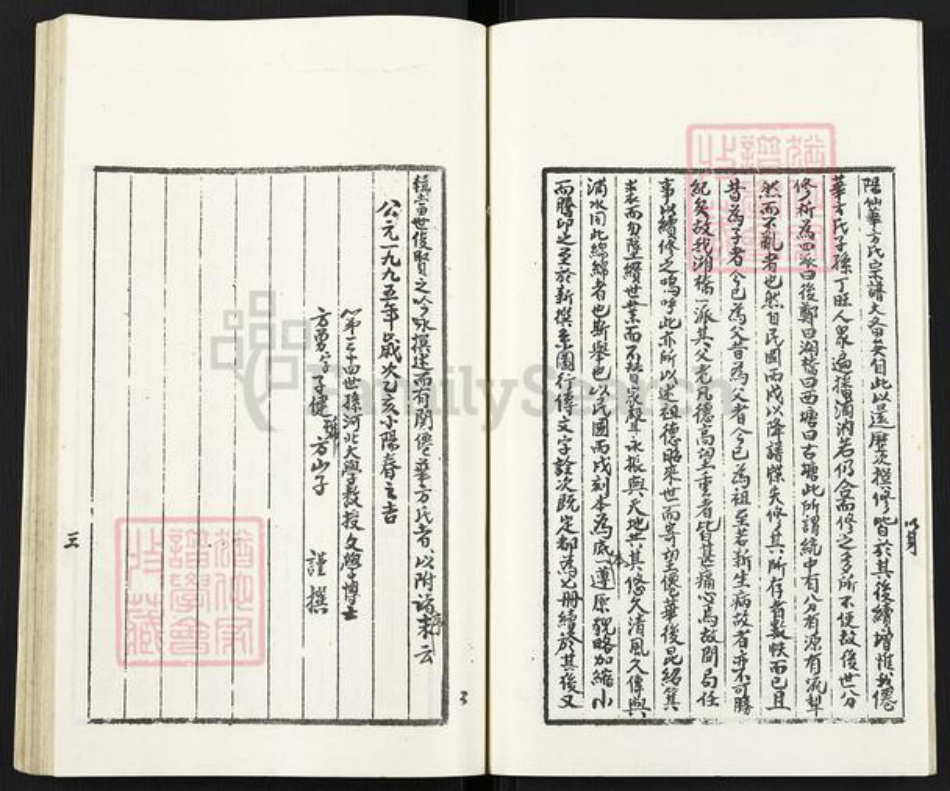 陽仙華方氏宗譜大備矣自此以還歷次撿修皆於其後續增惟我僊
華方氏子孫丁旺人眾遍撞濁汭若仍合而修之多所不便故後世分
修析為四派曰後鄭曰湖橋曰西塘曰古塘此所謂統中有分有源有流犁
然而不亂者也然自民國丙戌以降譜牒失修其所存者數帙而已且
昔為子者今已為父昔為父者今已為祖至若新生病故者亦不可勝
紀矣故我湖橋一派其父老凡德高望重者皆甚痛心焉故間局任
事以續修之嗚呼此亦所以述祖德昭來世而寄望僊華後昆紹箕
裘而勿墜纘世業而不替家聲永振與天地共其悠久清風久傳與
浦水同此綿綿者也斯舉也以民國丙戌刻本為底本一遵原貌略加縮小
而謄印之至於新撰系圖行傳文字詮次既定都為兄冊續於其後又
輯當世俊賢之吟詠撰述而有關僊華方氏者以附諸末云
公元一九九五年歲次乙亥小陽春之吉
第三十四世孫河北大學教授文學博士
方勇字子健號方山子 謹撰
三
3
FamilySearch